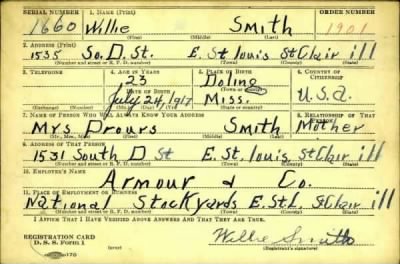 SERIAL NUMBER 1. NAME (Print) ORDER NUMBER
1660 Willie Smith 1901
(First) (Middle) (Last)
2. ADDRESS (Print)
1535 So. D. St. E. St louis St Clair ill
(Number and street or R. F. D. number) (Town) (County) (State)
3. TELEPHONE 4. AGE IN YEARS 5. PLACE OF BIRTH 6. COUNTRY OF CITIZENSHIP
23 Doling
DATE OF BIRTH (Town or county)
July 24, 1917 Miss. U.S.A.
7. NAME OF PERSON WHO WILL ALWAYS KNOW YOUR ADDRESS 8. RELATIONSHIP OF THAT PERSON
Mrs Drours Smith Mother
9. ADDRESS OF THAT PERSON
1531 South D St E. St. louis St Clair ill
(Number and street or R. F. D. number) (Town) (County) (State)
10. EMPLOYER'S NAME
Armour & Co.
11. PLACE OF EMPLOYMENT OR BUSINESS
National Stockyards E. St. L. St Clair ill
(Number and street or R. F. D. number) (Town) (County) (State)
I AFFIRM THAT I HAVE VERIFIED ABOVE ANSWERS AND THAT THEY ARE TRUE.
REGISTRATION CARD
D. S. S. Form 1 Willie Smith
(Registrant's signature)